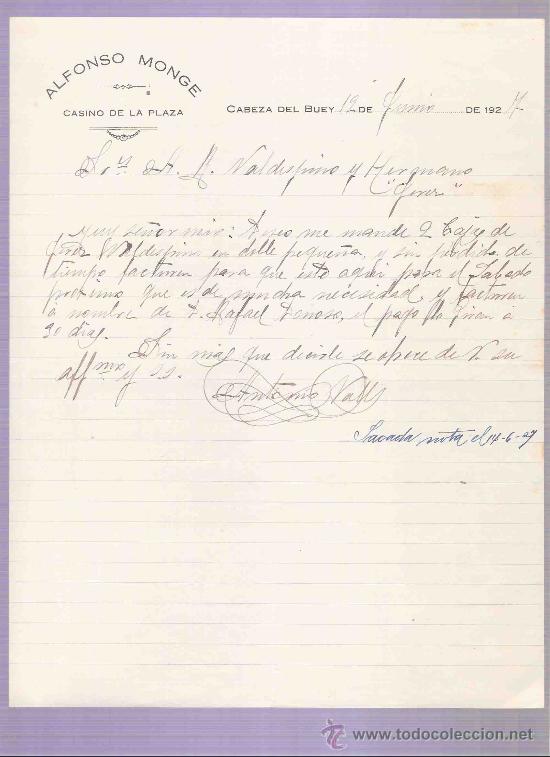 ALFONSO MONGE
CASINO DE LA PLAZA
CABEZA DEL BUEY 12 DE Junio DE 1927
Sres. A. R. Valdespino y Hermano
"Jerez"
Muy señor mio: Deseo me mande 2 Cajas de
Jerez Valdespino en doble pequeña, y sin perdida de
tiempo facturen para que este aqui para el Sabado
proximo que es de mucha necesidad, y facturen
a nombre de D. Rafael Donoso, el pago lo giran a
90 dias.
Sin mas que decirle se ofrece de V. su
affmo y SS.
Antonio Valls
Sacada nota el 14-6-27
todocoleccion
www.todocoleccion.net